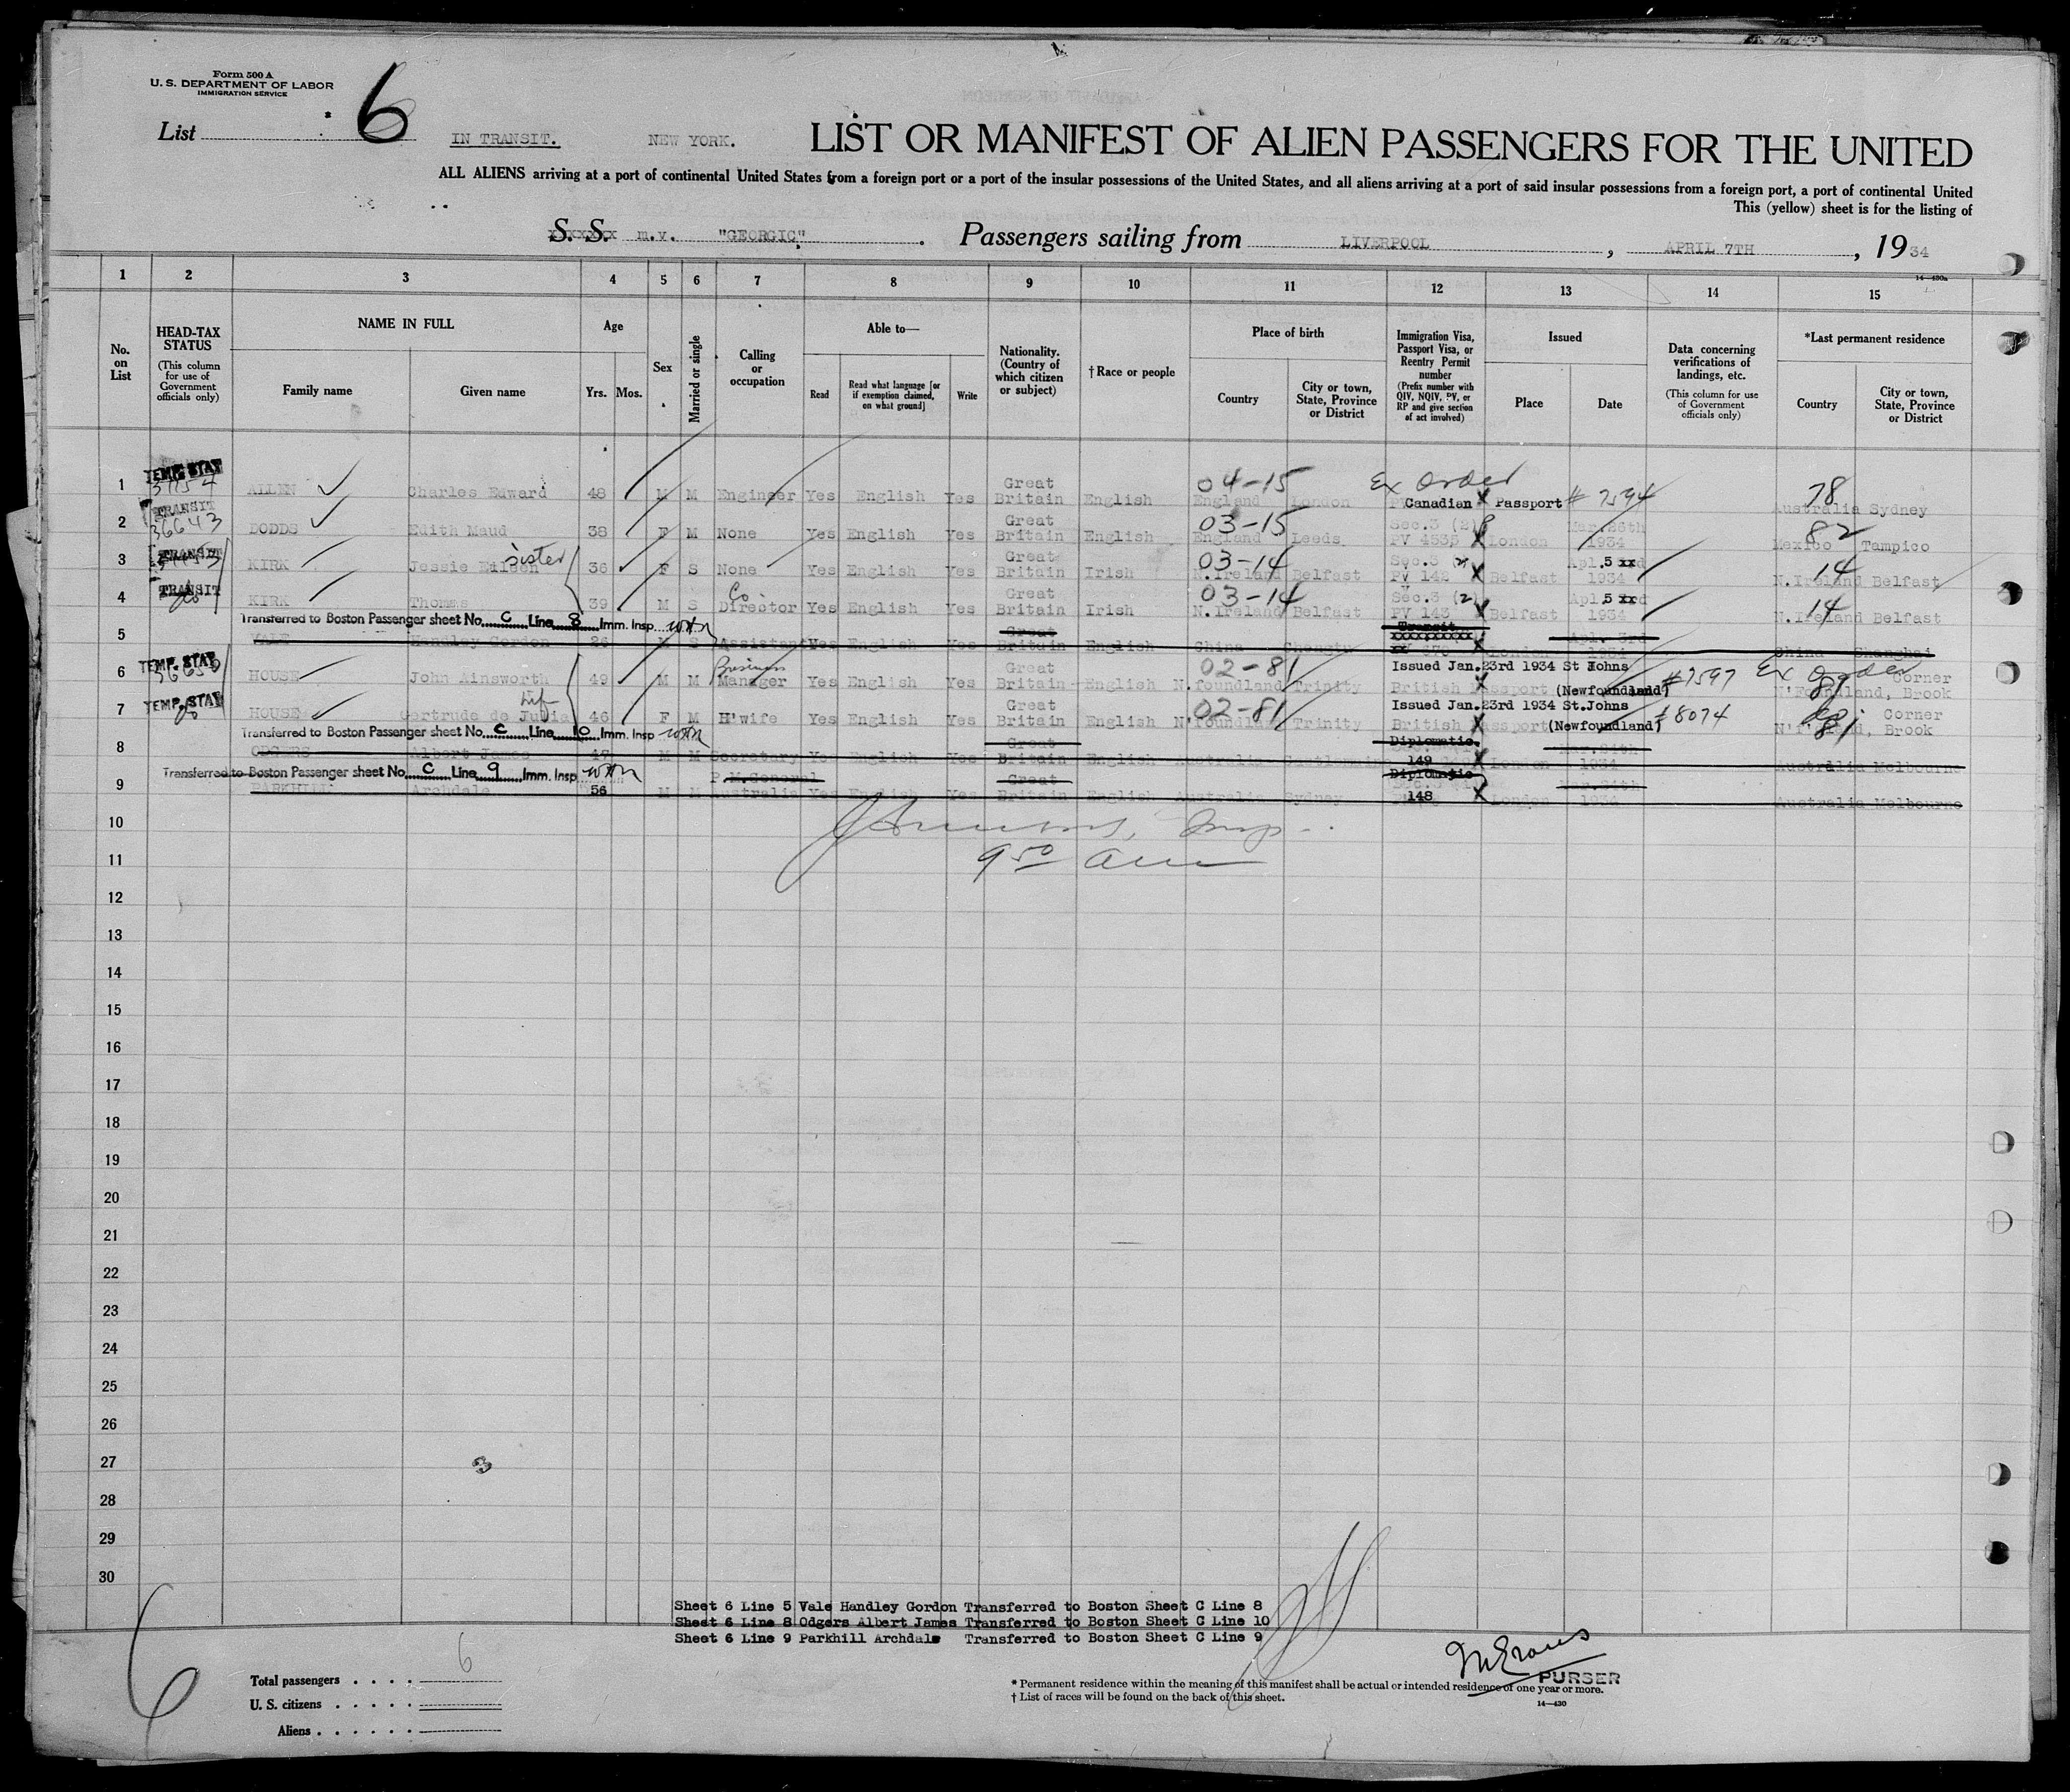 Form 500 A
U. S. DEPARTMENT OF LABOR
IMMIGRATION SERVICE
List 6
IN TRANSIT. NEW YORK.
LIST OR MANIFEST OF ALIEN PASSENGERS FOR THE UNITED
ALL ALIENS arriving at a port of continental United States from a foreign port or a port of the insular possessions of the United States, and all aliens arriving at a port of said insular possessions from a foreign port, a port of continental United
This (yellow) sheet is for the listing of
S. S. m.v. "GEORGIC" . Passengers sailing from LIVERPOOL , APRIL 7TH , 1934
14—430a
1 2 3 4 5 6 7 8 9 10 11 12 13 14 15
No. on List
HEAD-TAX STATUS
(This column for use of Government officials only)
NAME IN FULL
Family name Given name
Age
Yrs. Mos.
Sex
Married or single
Calling or occupation
Able to—
Read Read what language [or if exemption claimed, on what ground] Write
Nationality. (Country of which citizen or subject)
†Race or people
Place of birth
Country City or town, State, Province or District
Immigration Visa, Passport Visa, or Reentry Permit number
(Prefix number with QIV, NQIV, PV, or RP and give section of act involved)
Issued
Place Date
Data concerning verifications of landings, etc.
(This column for use of Government officials only)
*Last permanent residence
Country City or town, State, Province or District
1 TEMP. STAY ALLEN Charles Edward 48 M M Engineer Yes English Yes Great Britain English 04-15 England London Ex Order Canadian Passport # 7594 78 Australia Sydney
2 TRANSIT 36643 DODDS Edith Maud 38 F M None Yes English Yes Great Britain English 03-15 England Leeds Sec.3 (2) PV 4535 London Mar.26th 1934 82 Mexico Tampico
3 TRANSIT KIRK Jessie Eileen Sister 36 F S None Yes English Yes Great Britain Irish 03-14 N.Ireland Belfast Sec.3 (2) PV 142 Belfast Apl.5 1934 14 N.Ireland Belfast
4 TRANSIT do KIRK Thomas 39 M S Co. Director Yes English Yes Great Britain Irish 03-14 N.Ireland Belfast Sec.3 (2) PV 143 Belfast Apl.5 1934 14 N.Ireland Belfast
Transferred to Boston Passenger sheet No. C Line 8 Imm. Insp.
5 VALE Handley Gordon 26 M S Assistant Yes English Yes Great Britain English China Transit London Apl. 3rd 1934 China Shanghai
6 TEMP. STAY HOUSE John Ainsworth 49 M M Business Manager Yes English Yes Great Britain English 02-81 N.foundland Trinity Issued Jan.23rd 1934 St Johns British Passport (Newfoundland) #7597 Ex Order 81 N'Foundland, Corner Brook
7 TEMP. STAY do HOUSE Gertrude de Julia 46 F M H'wife Yes English Yes Great Britain English 02-81 N'foundland Trinity Issued Jan.23rd 1934 St.Johns British Passport (Newfoundland) #8074 do 81 Corner Brook
Transferred to Boston Passenger sheet No. C Line 10 Imm. Insp
8 ODGERS Albert James 47 M M Secretary Yes English Yes Great Britain English Australia Diplomatic. 149 London 1934 Australia Melbourne
Transferred to Boston Passenger sheet No. C Line 9 Imm. Insp.
9 PARKHILL Archdale 56 M M P.M.General Australia Yes English Yes Great Britain English Australia Sydney Diplomatic 148 London 1934 Australia Melbourne
10
11 9 50 am
12
13
14
15
16
17
18
19
20
21
22
23
24
25
26
27
28
29
30
Sheet 6 Line 5 Vale Handley Gordon Transferred to Boston Sheet C Line 8
Sheet 6 Line 8 Odgers Albert James Transferred to Boston Sheet C Line 10
Sheet 6 Line 9 Parkhill Archdale Transferred to Boston Sheet C Line 9
6
Total passengers . . . . 6
U. S. citizens . . . . .
Aliens . . . . . .
PURSER
* Permanent residence within the meaning of this manifest shall be actual or intended residence of one year or more.
† List of races will be found on the back of this sheet.
14—430